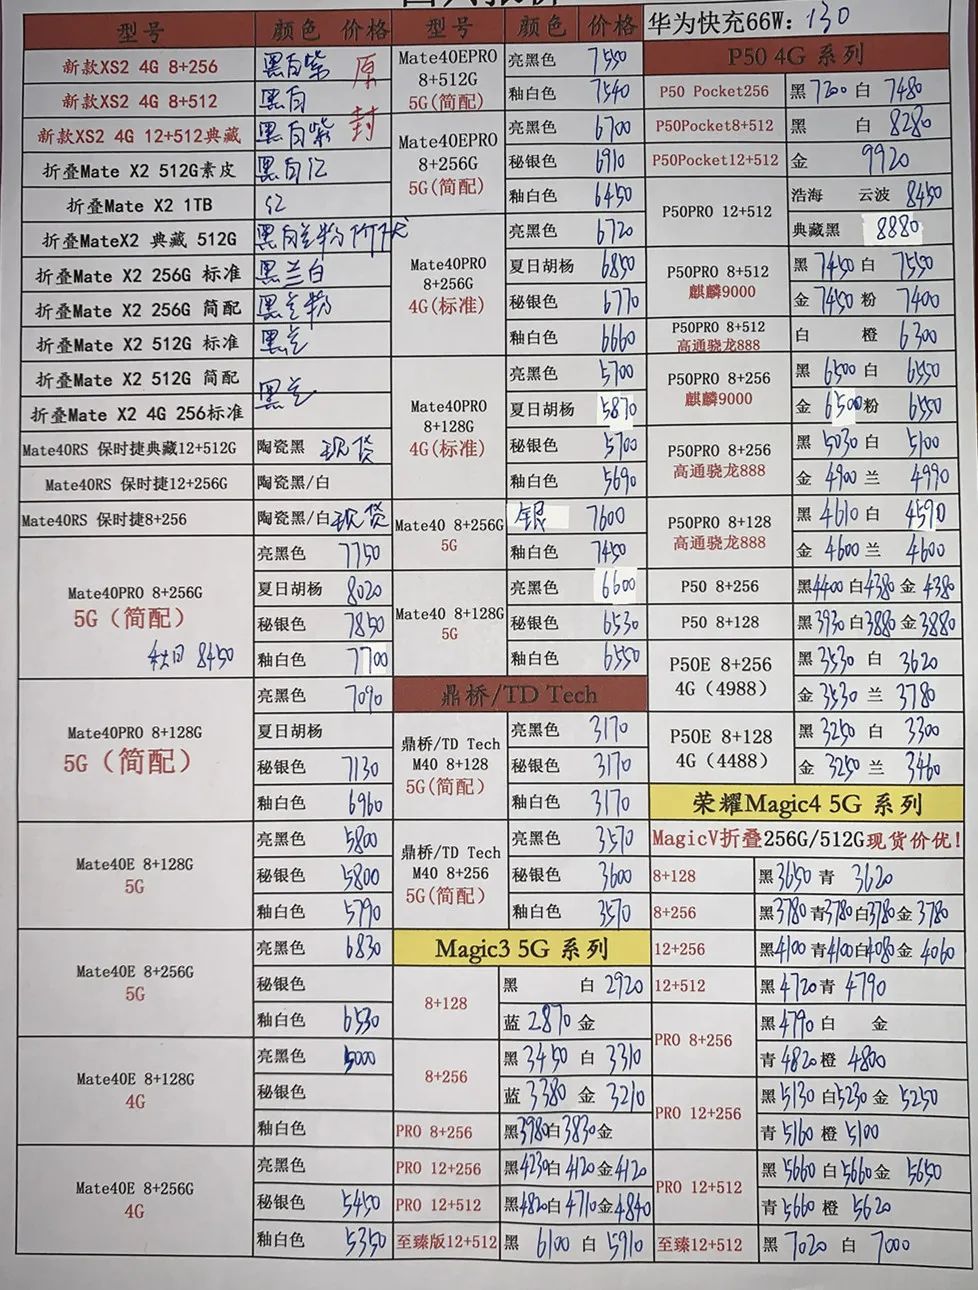 型号 颜色 价格
新款XS2 4G 8+256 黑白紫 原
新款XS2 4G 8+512 黑白
新款XS2 4G 12+512典藏 黑白紫 封
折叠Mate X2 512G素皮 黑白红
折叠Mate X2 1TB 红
折叠MateX2 典藏 512G
折叠Mate X2 256G 标准 黑兰白
折叠Mate X2 256G 简配 黑兰粉
折叠Mate X2 512G 标准 黑兰
折叠Mate X2 512G 简配 黑兰
折叠Mate X2 4G 256标准
Mate40RS 保时捷典藏12+512G 陶瓷黑 现货
Mate40RS 保时捷12+256G 陶瓷黑/白
Mate40RS 保时捷8+256 陶瓷黑/白 现货
Mate40PRO 8+256G
5G（简配）
秋日 8450
亮黑色 7750
夏日胡杨 8020
秘银色 7850
釉白色 7700
Mate40PRO 8+128G
5G（简配）
亮黑色 7090
夏日胡杨
秘银色 7130
釉白色 6960
Mate40E 8+128G
5G
亮黑色 5800
秘银色 5800
釉白色 5790
Mate40E 8+256G
5G
亮黑色 6830
秘银色
釉白色 6530
Mate40E 8+128G
4G
亮黑色 5000
秘银色
釉白色
Mate40E 8+256G
4G
亮黑色
秘银色 5450
釉白色 5350
型号 颜色 价格
Mate40EPRO
8+512G
5G(简配)
亮黑色 7550
釉白色 7540
Mate40EPRO
8+256G
5G(简配)
亮黑色 6700
秘银色 6910
釉白色 6450
Mate40PRO
8+256G
4G(标准)
亮黑色 6720
夏日胡杨 6850
秘银色 6770
釉白色 6660
Mate40PRO
8+128G
4G(标准)
亮黑色 5700
夏日胡杨 5870
秘银色 5700
釉白色 5690
Mate40 8+256G
5G
银 7600
釉白色 7450
Mate40 8+128G
5G
亮黑色 6600
秘银色 6530
釉白色 6550
鼎桥/TD Tech
鼎桥/TD Tech
M40 8+128
5G(简配)
亮黑色 3170
秘银色 3170
釉白色 3170
鼎桥/TD Tech
M40 8+256
5G(简配)
亮黑色 3570
秘银色 3600
釉白色 3570
Magic3 5G 系列
8+128
黑 白 2920
蓝 2870 金
8+256
黑 3450 白 3310
蓝 3380 金 3210
PRO 8+256 黑3980白3830金
PRO 12+256 黑4230白4120金4120
PRO 12+512 黑4820白4710金4840
至臻版12+512 黑 6100 白 5910
华为快充66W: 130
P50 4G 系列
P50 Pocket256 黑 7200 白 7480
P50Pocket8+512 黑 白 8280
P50Pocket12+512 金 9920
P50PRO 12+512
浩海 云波 8450
典藏黑 8880
P50PRO 8+512
麒麟9000
黑 7450 白 7550
金 7450 粉 7400
P50PRO 8+512
高通骁龙888
白 橙 6300
P50PRO 8+256
麒麟9000
黑 6500 白 6550
金 6500 粉 6550
P50PRO 8+256
高通骁龙888
黑 5030 白 5100
金 4900 兰 4990
P50PRO 8+128
高通骁龙888
黑 4610 白 4590
金 4600 兰 4600
P50 8+256 黑4400 白4380 金 4380
P50 8+128 黑3930 白3880 金3880
P50E 8+256
4G（4988）
黑 3530 白 3620
金 3530 兰 3780
P50E 8+128
4G（4488）
黑 3250 白 3300
金 3250 兰 3460
荣耀Magic4 5G 系列
MagicV折叠256G/512G现货价优!
8+128 黑 3650 青 3620
8+256 黑3780 青3780白3780 金 3780
12+256 黑4100 青4100白4080 金 4060
12+512 黑 4720 青 4790
PRO 8+256
黑4790 白 金
青4820 橙 4800
PRO 12+256
黑 5130 白5230 金 5250
青 5160 橙 5100
PRO 12+512
黑 5660 白 5660 金 5650
青 5660 橙 5620
至臻12+512 黑 7020 白 7000